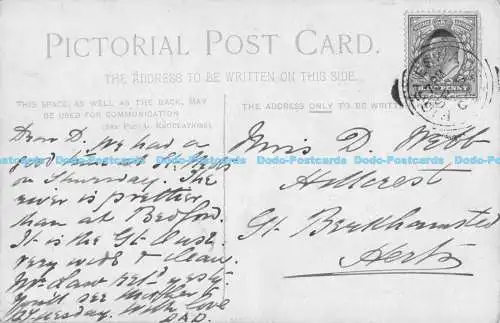 PICTORIAL POST CARD.
THE ADDRESS TO BE WRITTEN ON THIS SIDE.
THIS SPACE, AS WELL AS THE BACK, MAY
BE USED FOR COMMUNICATION
(SEE POSTAL REGULATIONS).
THE ADDRESS ONLY TO BE WRITTEN
HALFPENNY
Dear D. We had a
good
on Thursday. The
river is prettier
than at Bedford.
It is the Gt. Ouse
very wide & clean.
We saw yesty.
You'll see mother
Thursday. With love
DAD.
Miss D. Webb
Hillcrest
Gt. Berkhamsted
Herts
Dodo-Postcards Dodo-Postcards Dodo-Postcards Dodo-Postcards Dodo-Postcards